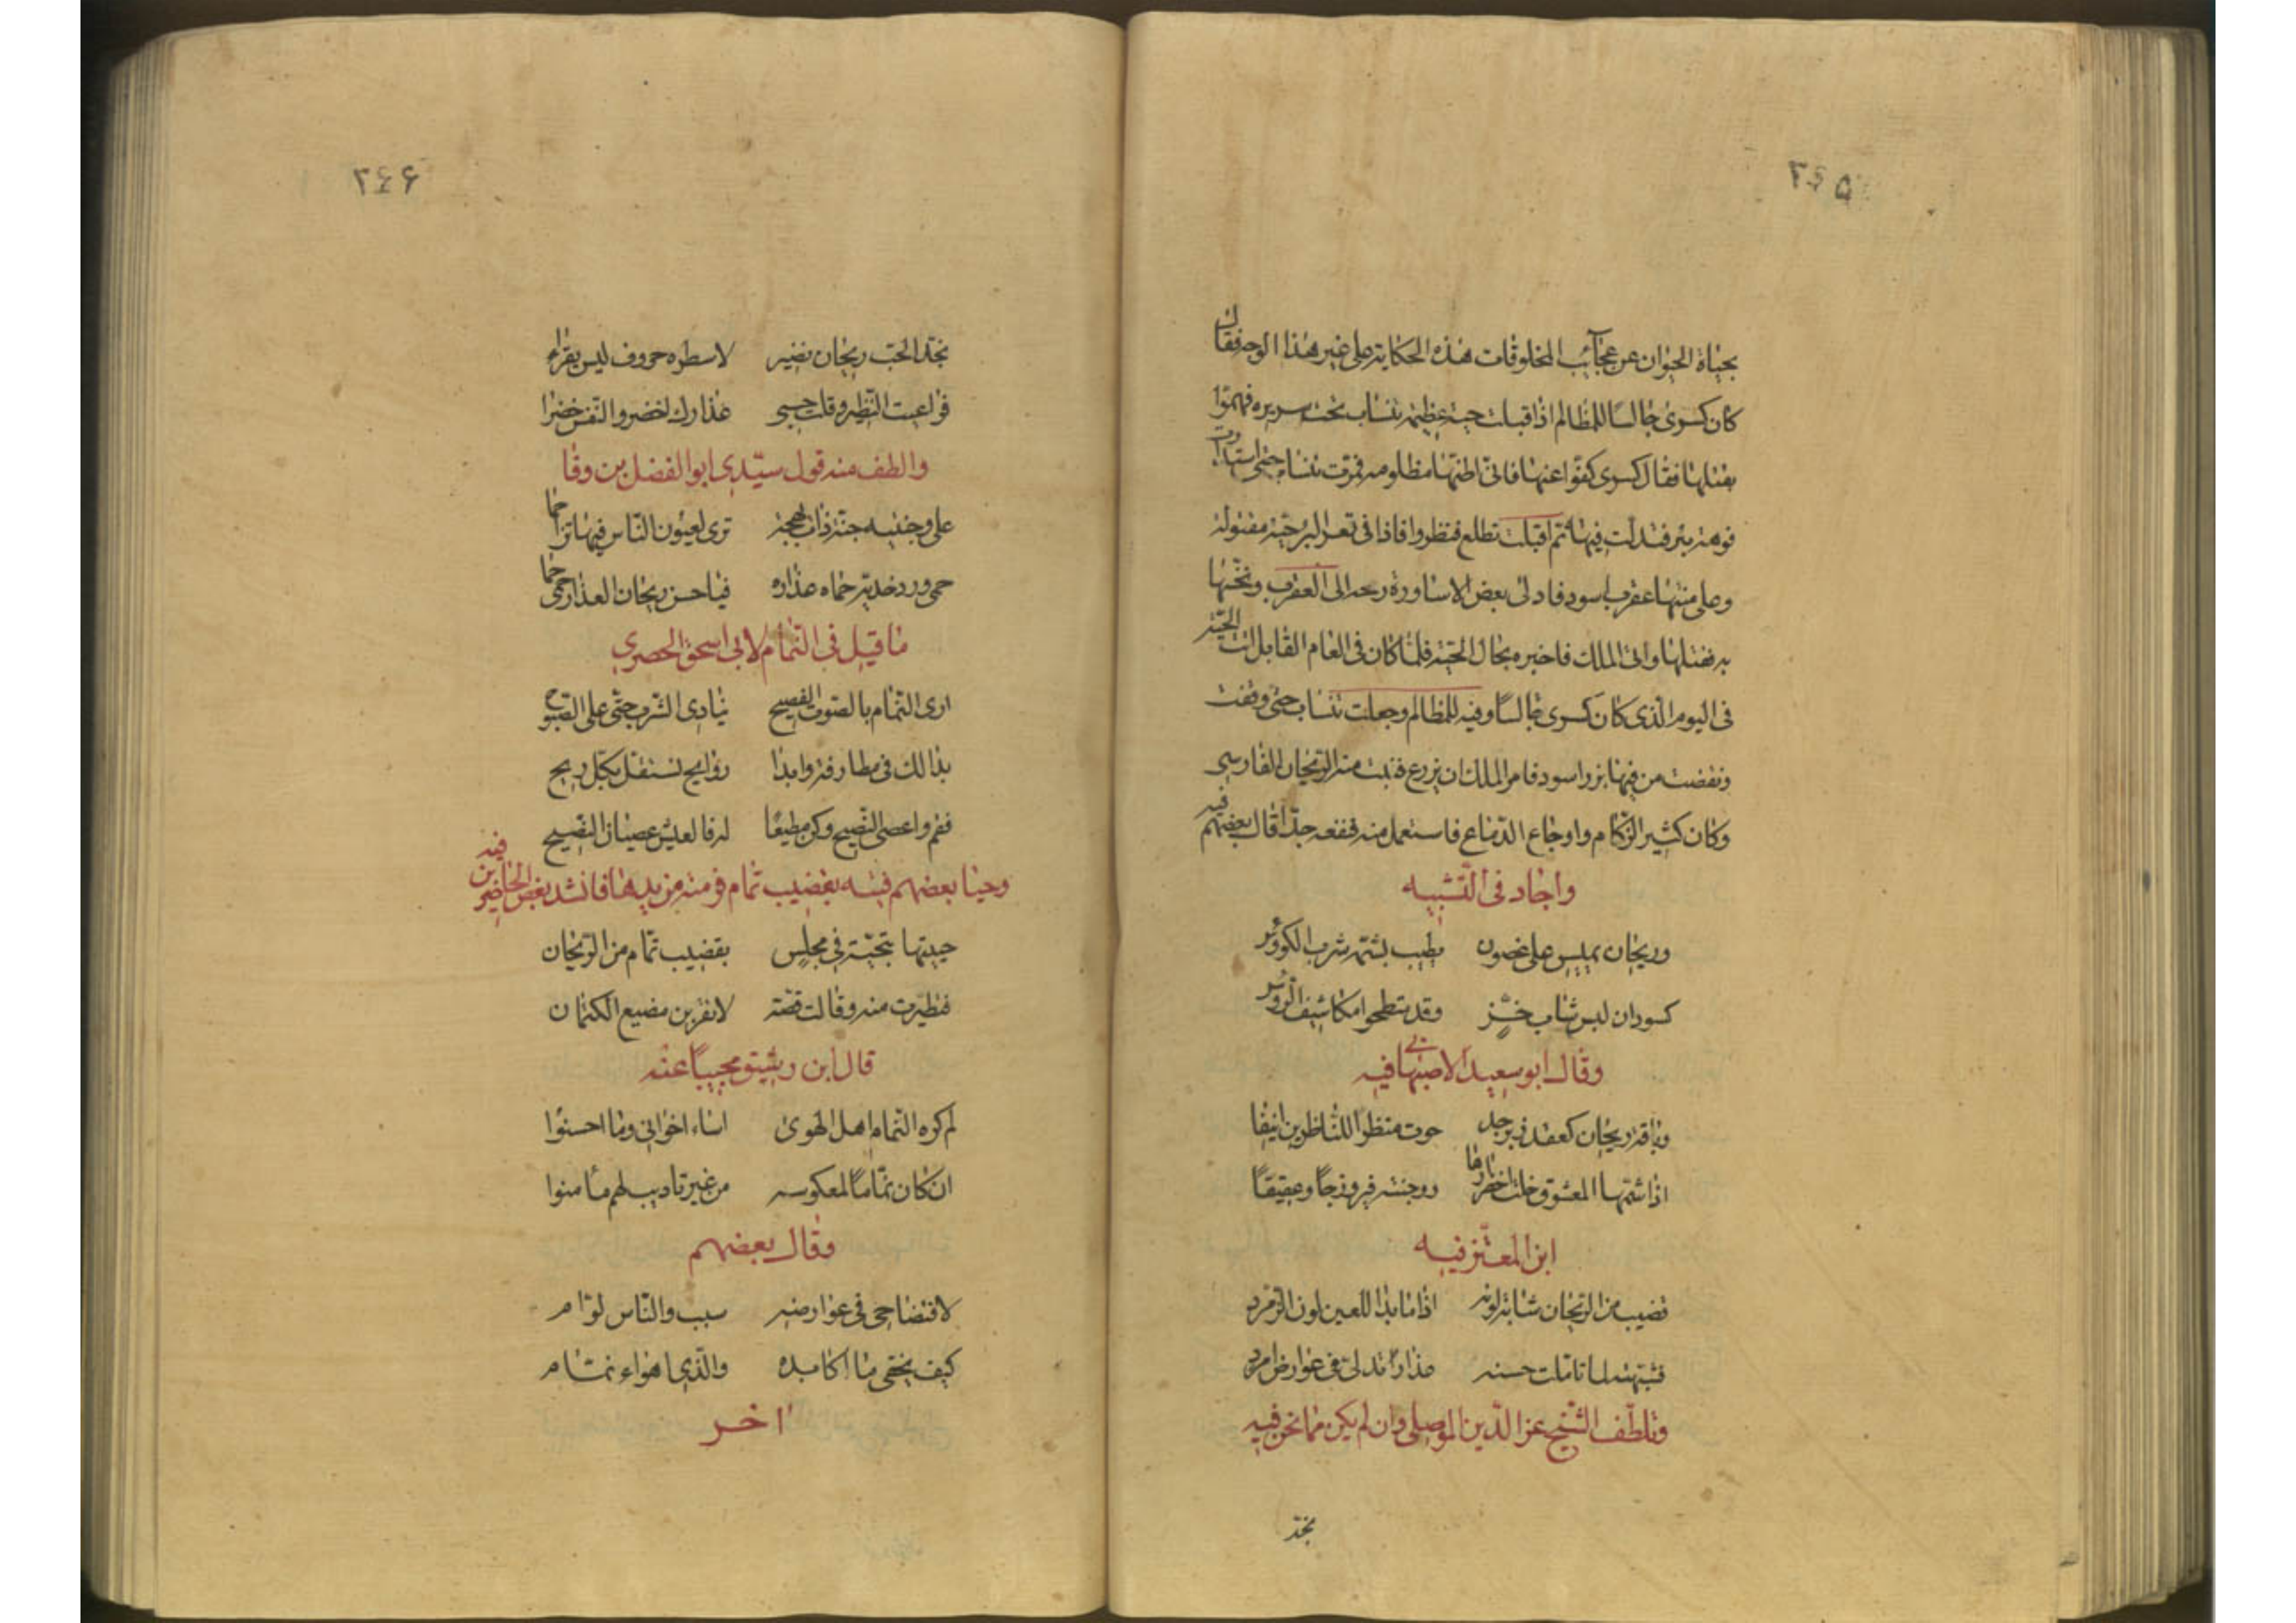 ۲۴۵
بحياة الحيوان عن عجآئب المخلوقات هذه الحكاية على غير هذا الوجه فقال
كان كسرى جالسا للمظالم اذ اقبلت حية عظيمة تنساب تحت سريره فهموا
بقتلها فقال كسرى كفوا عنها فانى اظنها مظلومه فمرت تنساب حتى استدارت
فوهة بئر فتدلت فيها ثم اقبلت تطلع فنظروا فاذا فى قعر البئر حية مقتولة
وعلى متنها عقرب اسود فادلى بعض الاساورة رمحه الى العقرب ونخسها
به فقتلها واتى الملك فاخبره بحال الحية فلما كان فى العام القابل اتت الحية
فى اليوم الذى كان كسرى جالسًا وفيه للمظالم وجعلت تنساب حتى وقفت
ونفضت من فيها بزرا اسود فامر الملك ان يزرع فنبت منه الريحان الفارسى
وكان كثير الزكام واوجاع الدماغ فاستعمل منه فنفعه جدّا قال بعضهم فيه
واجاد فى التشبيه
وريحان يميس على غصون يطيب بشمه شرب الكؤوس
كسودان لبس ثياب خز وقد متطحوا مكاشيف الرؤوس
وقال ابو سعيد الاصبهانى فيه
وباقة ريحان كعقد زبرجد حوت منظرا للناظرين انيقا
اذا شمها المعشوق خلت اخضرارها ووجنته فيروزجًا وعقيقًا
ابن المعتز فيه
قضيب من الريحان شابه لونه اذا ما بدا للعين لون الزمرد
فشبهته لما تاملت حسنه عذارًا تدلى فى عوارض امرد
وتلطّف الشيخ عز الدين الموصلى وان لم يكن مما نحن فيه
بخد
۲۴۶
بخد الحب ريحان نضير لاسطره حروف ليس يقراء
فراعيت النظير وقلت حسبى عذارك اخضر والنفس خضرا
والطف منه قول سيّدى ابو الفضل بن وفا
على وجنتيه جنة ذات بهجة ترى لعيون الناس فيها تزاحما
حمى ورد خديه حماه عذاره فيا حسن ريحان العذار حمى حما
ما قيل فى النمام لابى اسحق الحصرى
ارى النمام بالصوت الفصيح ينادى الشرب حتى على الصبوح
بذالك فى مطارفه وابدا روايح تستقل بكل ريح
فقم واعصى النصيح وكن مطيعًا لرفا لعيش عصيان النصيح
وحيا بعضهم فيه بقضيب نمام فرمته من يدها فانشد بعض الحاضرين فيه
حييتها بتحية فى مجلس بقضيب نمام من الريحان
فتطيرت منه وقالت قضه لاتقربن مضيع الكتمان
قال ابن رشيق مجيبًا عنه
لم كره النمام اهل الهوى اساء اخوانى وما احسنوا
ان كان نمامًا لمعكوسه من غير تاديب لهم مأمنوا
وقال بعضهم
لافتضاحى فى عوارضه سبب والناس لوّام
كيف يخفى ما اكامده والذى اهواء نمام
اخر